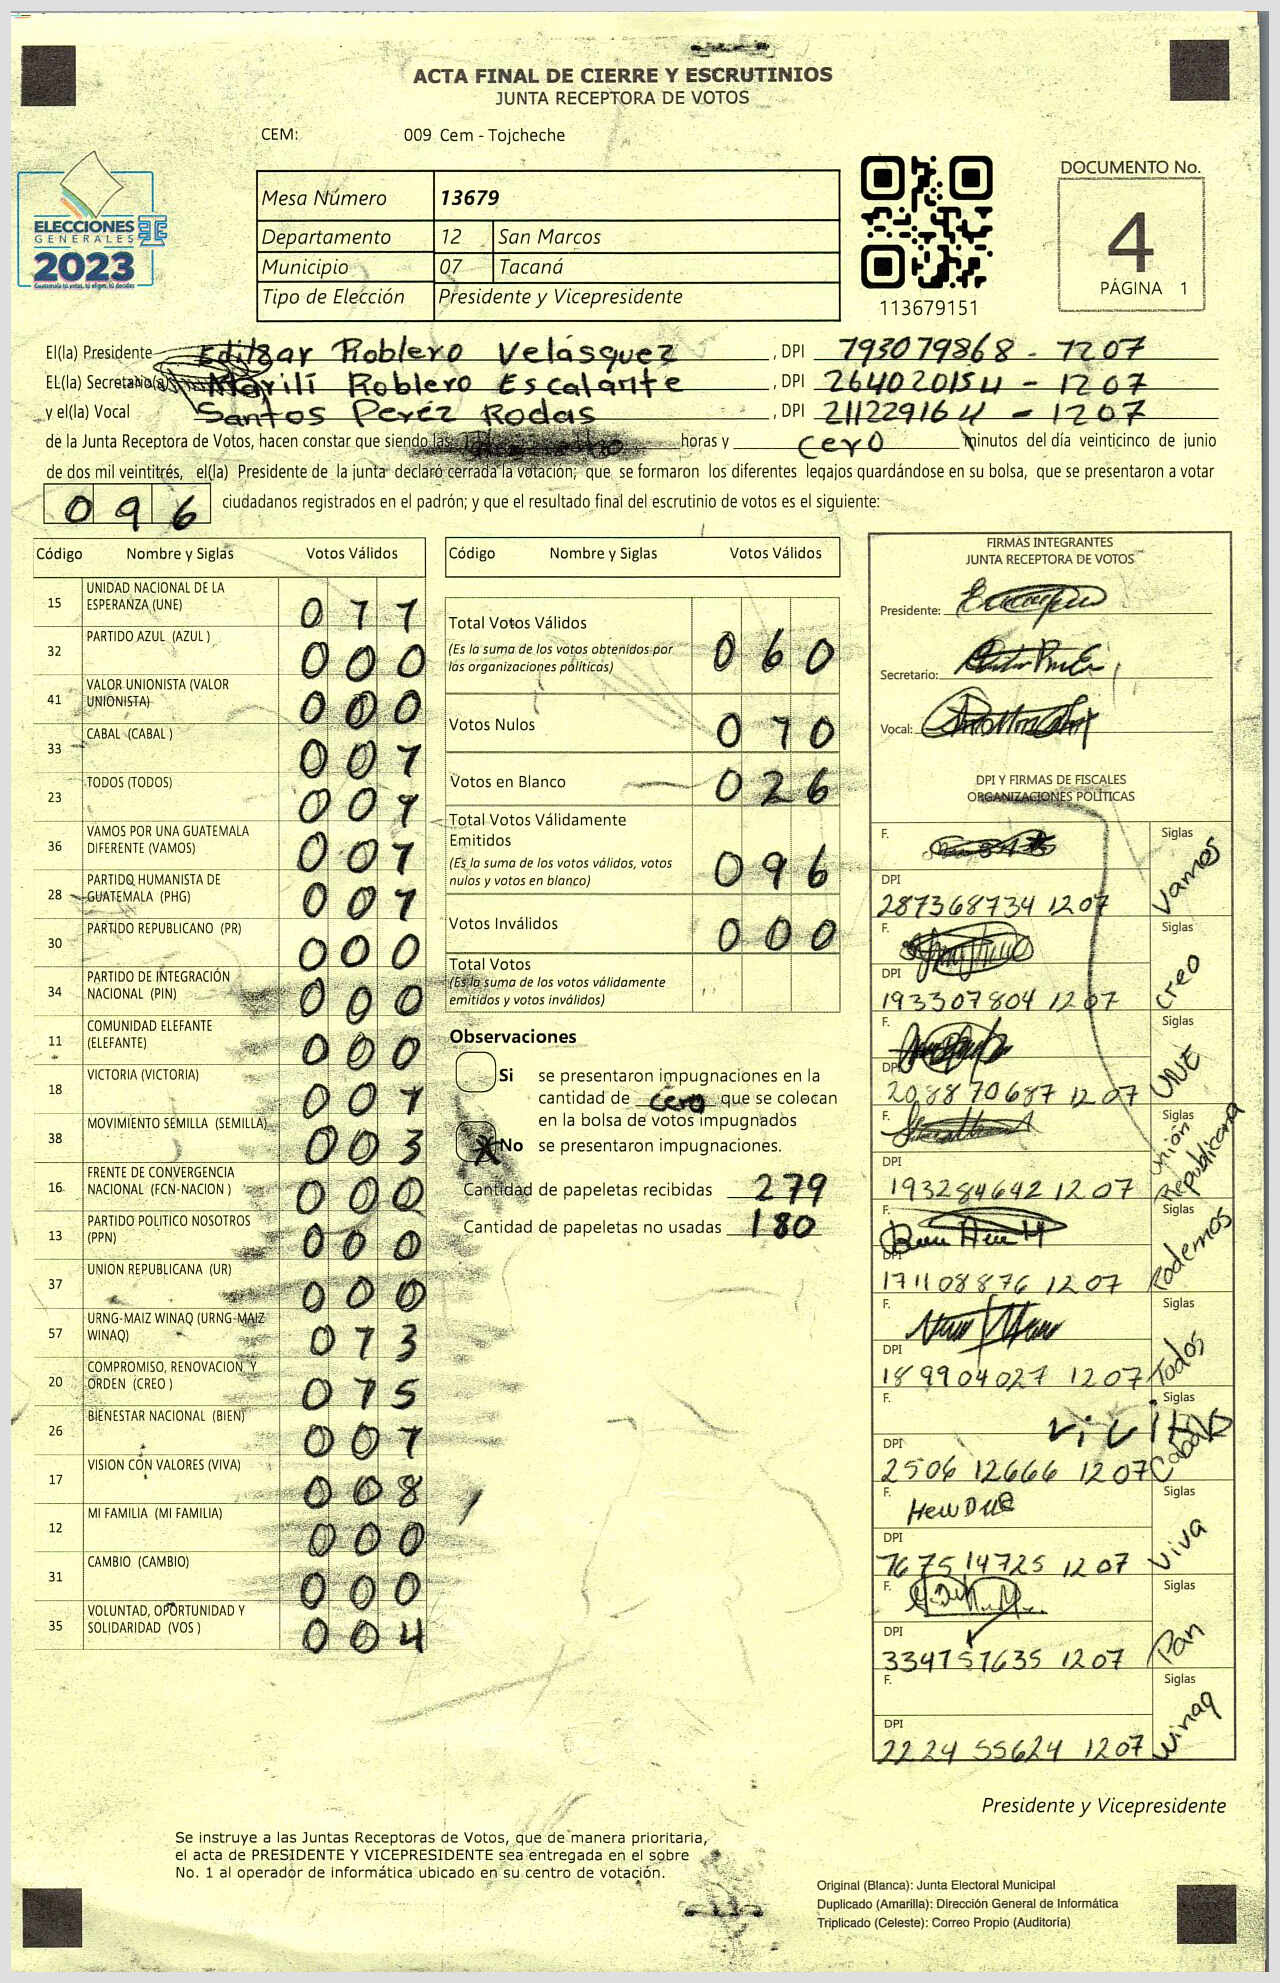 ACTA FINAL DE CIERRE Y ESCRUTINIOS
JUNTA RECEPTORA DE VOTOS
CEM: 009 Cem - Tojcheche
ELECCIONES
GENERALES
2023
Guatemala tú votas, tú eliges, tú decides
Mesa Número 13679
Departamento 12 San Marcos
Municipio 07 Tacaná
Tipo de Elección Presidente y Vicepresidente
113679151
DOCUMENTO No.
4
PÁGINA 1
El(la) Presidente Edilzar Roblero Velásquez , DPI 793079868 - 1207
EL(la) Secretario(a) Marilí Roblero Escalante , DPI 264020154 - 1207
y el(la) Vocal Santos Peréz Rodas , DPI 211229164 - 1207
de la Junta Receptora de Votos, hacen constar que siendo las horas y cero minutos del día veinticinco de junio
de dos mil veintitrés, el(la) Presidente de la junta declaró cerrada la votación; que se formaron los diferentes legajos quardándose en su bolsa, que se presentaron a votar
096 ciudadanos registrados en el padrón; y que el resultado final del escrutinio de votos es el siguiente:
Código Nombre y Siglas Votos Válidos
15 UNIDAD NACIONAL DE LA ESPERANZA (UNE) 011
32 PARTIDO AZUL (AZUL ) 000
41 VALOR UNIONISTA (VALOR UNIONISTA) 000
33 CABAL (CABAL ) 001
23 TODOS (TODOS) 001
36 VAMOS POR UNA GUATEMALA DIFERENTE (VAMOS) 001
28 PARTIDO HUMANISTA DE GUATEMALA (PHG) 001
30 PARTIDO REPUBLICANO (PR) 000
34 PARTIDO DE INTEGRACIÓN NACIONAL (PIN) 000
11 COMUNIDAD ELEFANTE (ELEFANTE) 000
18 VICTORIA (VICTORIA) 001
38 MOVIMIENTO SEMILLA (SEMILLA) 003
16 FRENTE DE CONVERGENCIA NACIONAL (FCN-NACION ) 000
13 PARTIDO POLITICO NOSOTROS (PPN) 000
37 UNION REPUBLICANA (UR) 000
57 URNG-MAIZ WINAQ (URNG-MAIZ WINAQ) 013
20 COMPROMISO, RENOVACION Y ORDEN (CREO ) 015
26 BIENESTAR NACIONAL (BIEN) 001
17 VISION CON VALORES (VIVA) 008
12 MI FAMILIA (MI FAMILIA) 000
31 CAMBIO (CAMBIO) 000
35 VOLUNTAD, OPORTUNIDAD Y SOLIDARIDAD (VOS ) 004
Código Nombre y Siglas Votos Válidos
Total Votos Válidos 060
(Es la suma de los votos obtenidos por
las organizaciones políticas)
Votos Nulos 010
Votos en Blanco 026
Total Votos Válidamente
Emitidos
(Es la suma de los votos válidos, votos
nulos y votos en blanco) 096
Votos Inválidos 000
Total Votos
(Es la suma de los votos válidamente
emitidos y votos inválidos)
Observaciones
Si se presentaron impugnaciones en la
cantidad de cero que se colocan
en la bolsa de votos impugnados
X No se presentaron impugnaciones.
Cantidad de papeletas recibidas 279
Cantidad de papeletas no usadas 180
FIRMAS INTEGRANTES
JUNTA RECEPTORA DE VOTOS
Presidente:
Secretario:
Vocal:
DPI Y FIRMAS DE FISCALES
ORGANIZACIONES POLÍTICAS
F. Siglas Vamos
DPI 287368734 1207
F. Siglas Creo
DPI 193307804 1207
F. Siglas UNE
DPI 208870687 1207
F. Siglas Unión Republicana
DPI 193284642 1207
F. Siglas Podemos
DPI 171108876 1207
F. Siglas Todos
DPI 189904027 1207
F. Siglas
DPI 2506 12666 1207
F. Siglas Viva
DPI 767514725 1207
F. Siglas Pan
DPI 334757635 1207
F. Siglas Winaq
DPI 2224 55624 1207
Presidente y Vicepresidente
Se instruye a las Juntas Receptoras de Votos, que de manera prioritaria,
el acta de PRESIDENTE Y VICEPRESIDENTE sea entregada en el sobre
No. 1 al operador de informática ubicado en su centro de votación.
Original (Blanca): Junta Electoral Municipal
Duplicado (Amarilla): Dirección General de Informática
Triplicado (Celeste): Correo Propio (Auditoría)